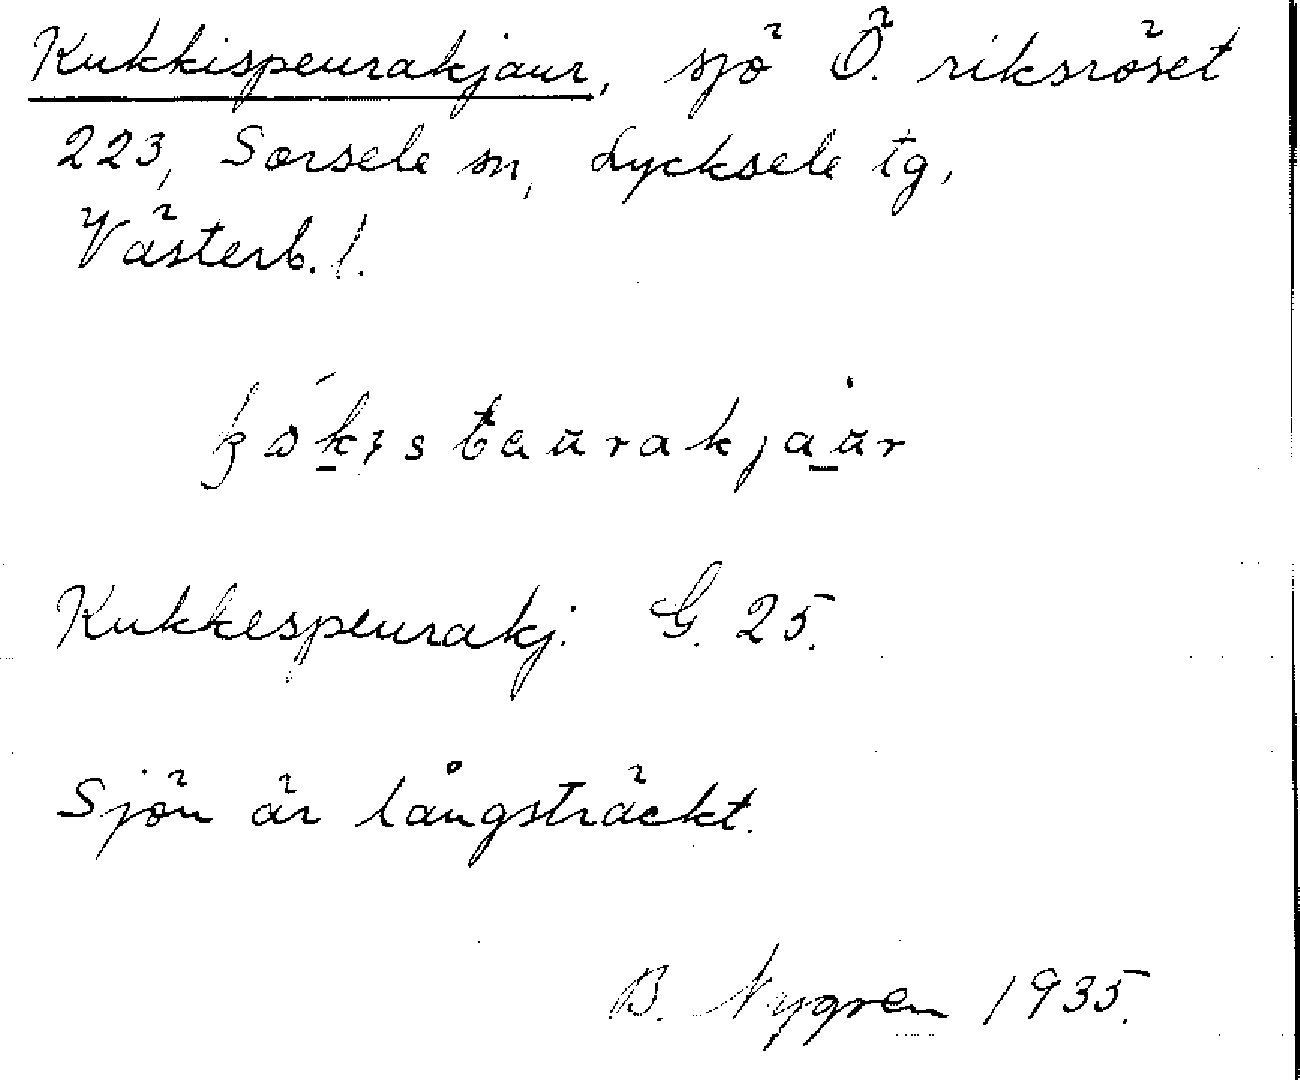 Kukkispeurakjaur, sjö Ö. riksröset
223, Sorsele sn, Lycksele tg,
Västerb. l.
Kukkespeurakj. G. 25.
Sjön är långsträckt.
B. Nygren 1935.